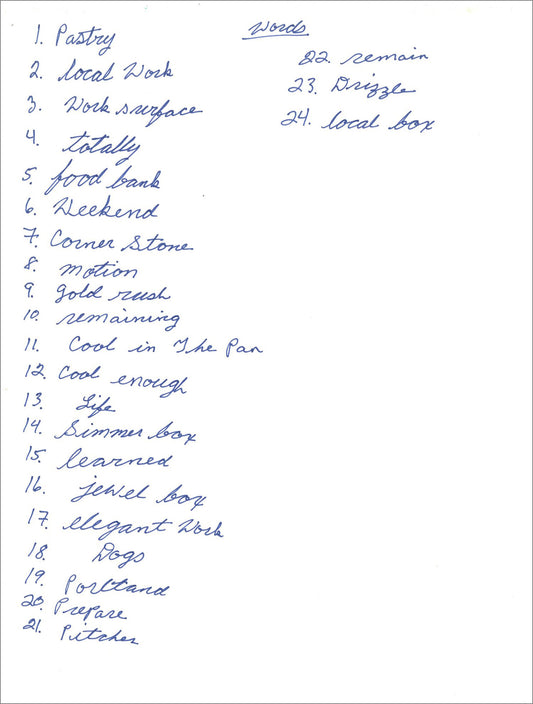 Words
1. Pastry
2. local Work
3. Work surface
4. totally
5. food bank
6. Weekend
7. Corner Stone
8. motion
9. gold rush
10. remaining
11. Cool in The Pan
12. Cool enough
13. Life
14. Simmer box
15. learned
16. jewel box
17. elegant Work
18. Dogs
19. Portland
20. Prepare
21. Pitcher
22. remain
23. Drizzle
24. local box